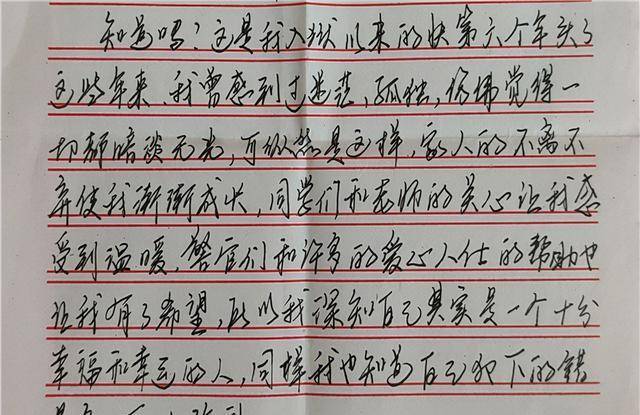 知道吗？这是我入狱以来的快第六个年头了
这些年来，我曾感到过迷茫，孤独，仿佛觉得一
切都暗淡无光，可纵然是这样，家人的不离不
弃使我渐渐成长，同学们和老师的关心让我感
受到温暖，警官们和许多的爱心人仕的帮助也
让我有了希望，所以我深知自己其实是一个十分
幸福和幸运的人，同样我也知道自己犯下的错